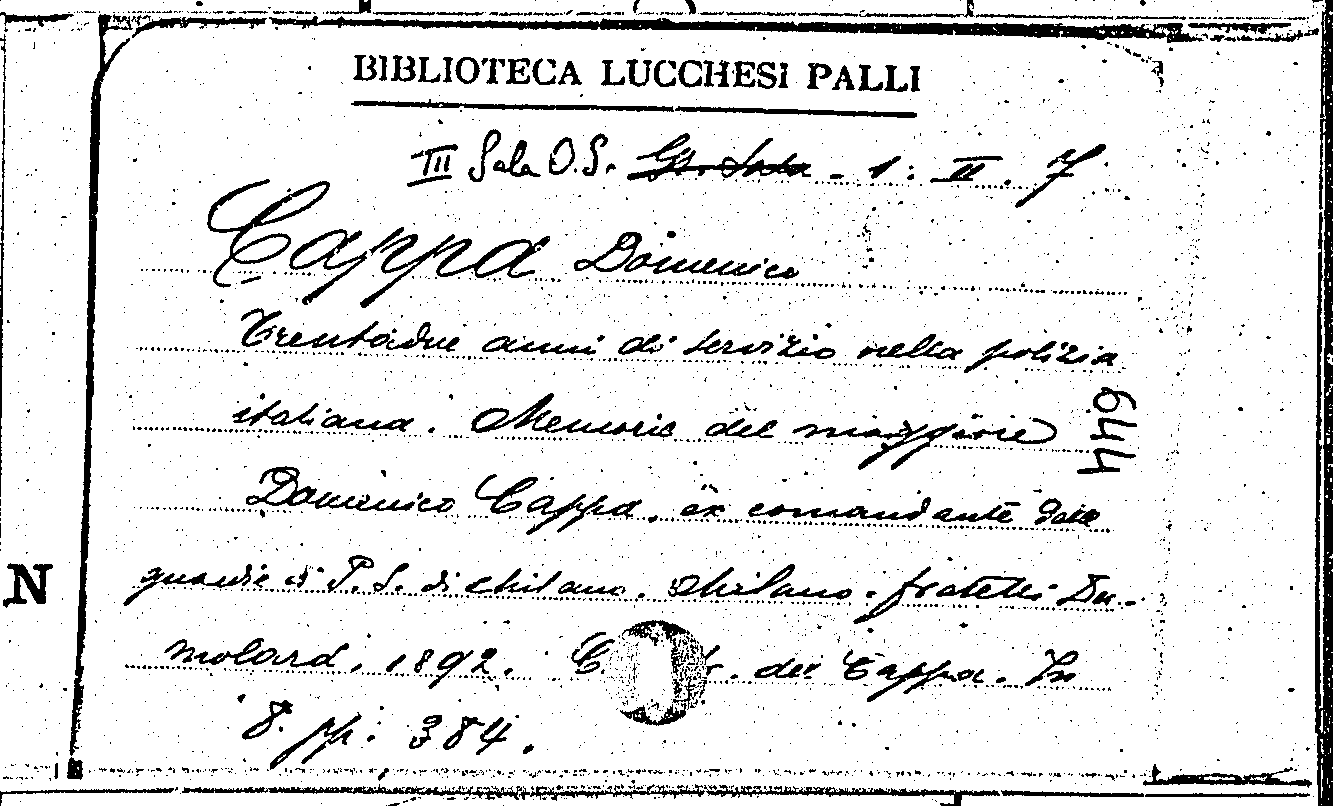 BIBLIOTECA LUCCHESI PALLI
III Sala O.S. Gr. Sala - 1: II. 7
Cappa Domenico
Trentadue anni di servizio nella polizia
italiana. Memorie del maggiore
644
Domenico Cappa, ex comandante delle
guardie di P. S. di Milano. Milano. fratelli Du-
molard. 1892. C. del Cappa. In
8. pp: 384.
N